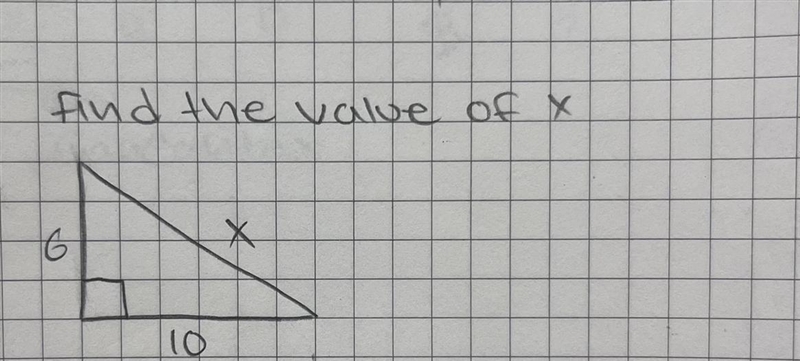 find the value of x
6
x
10